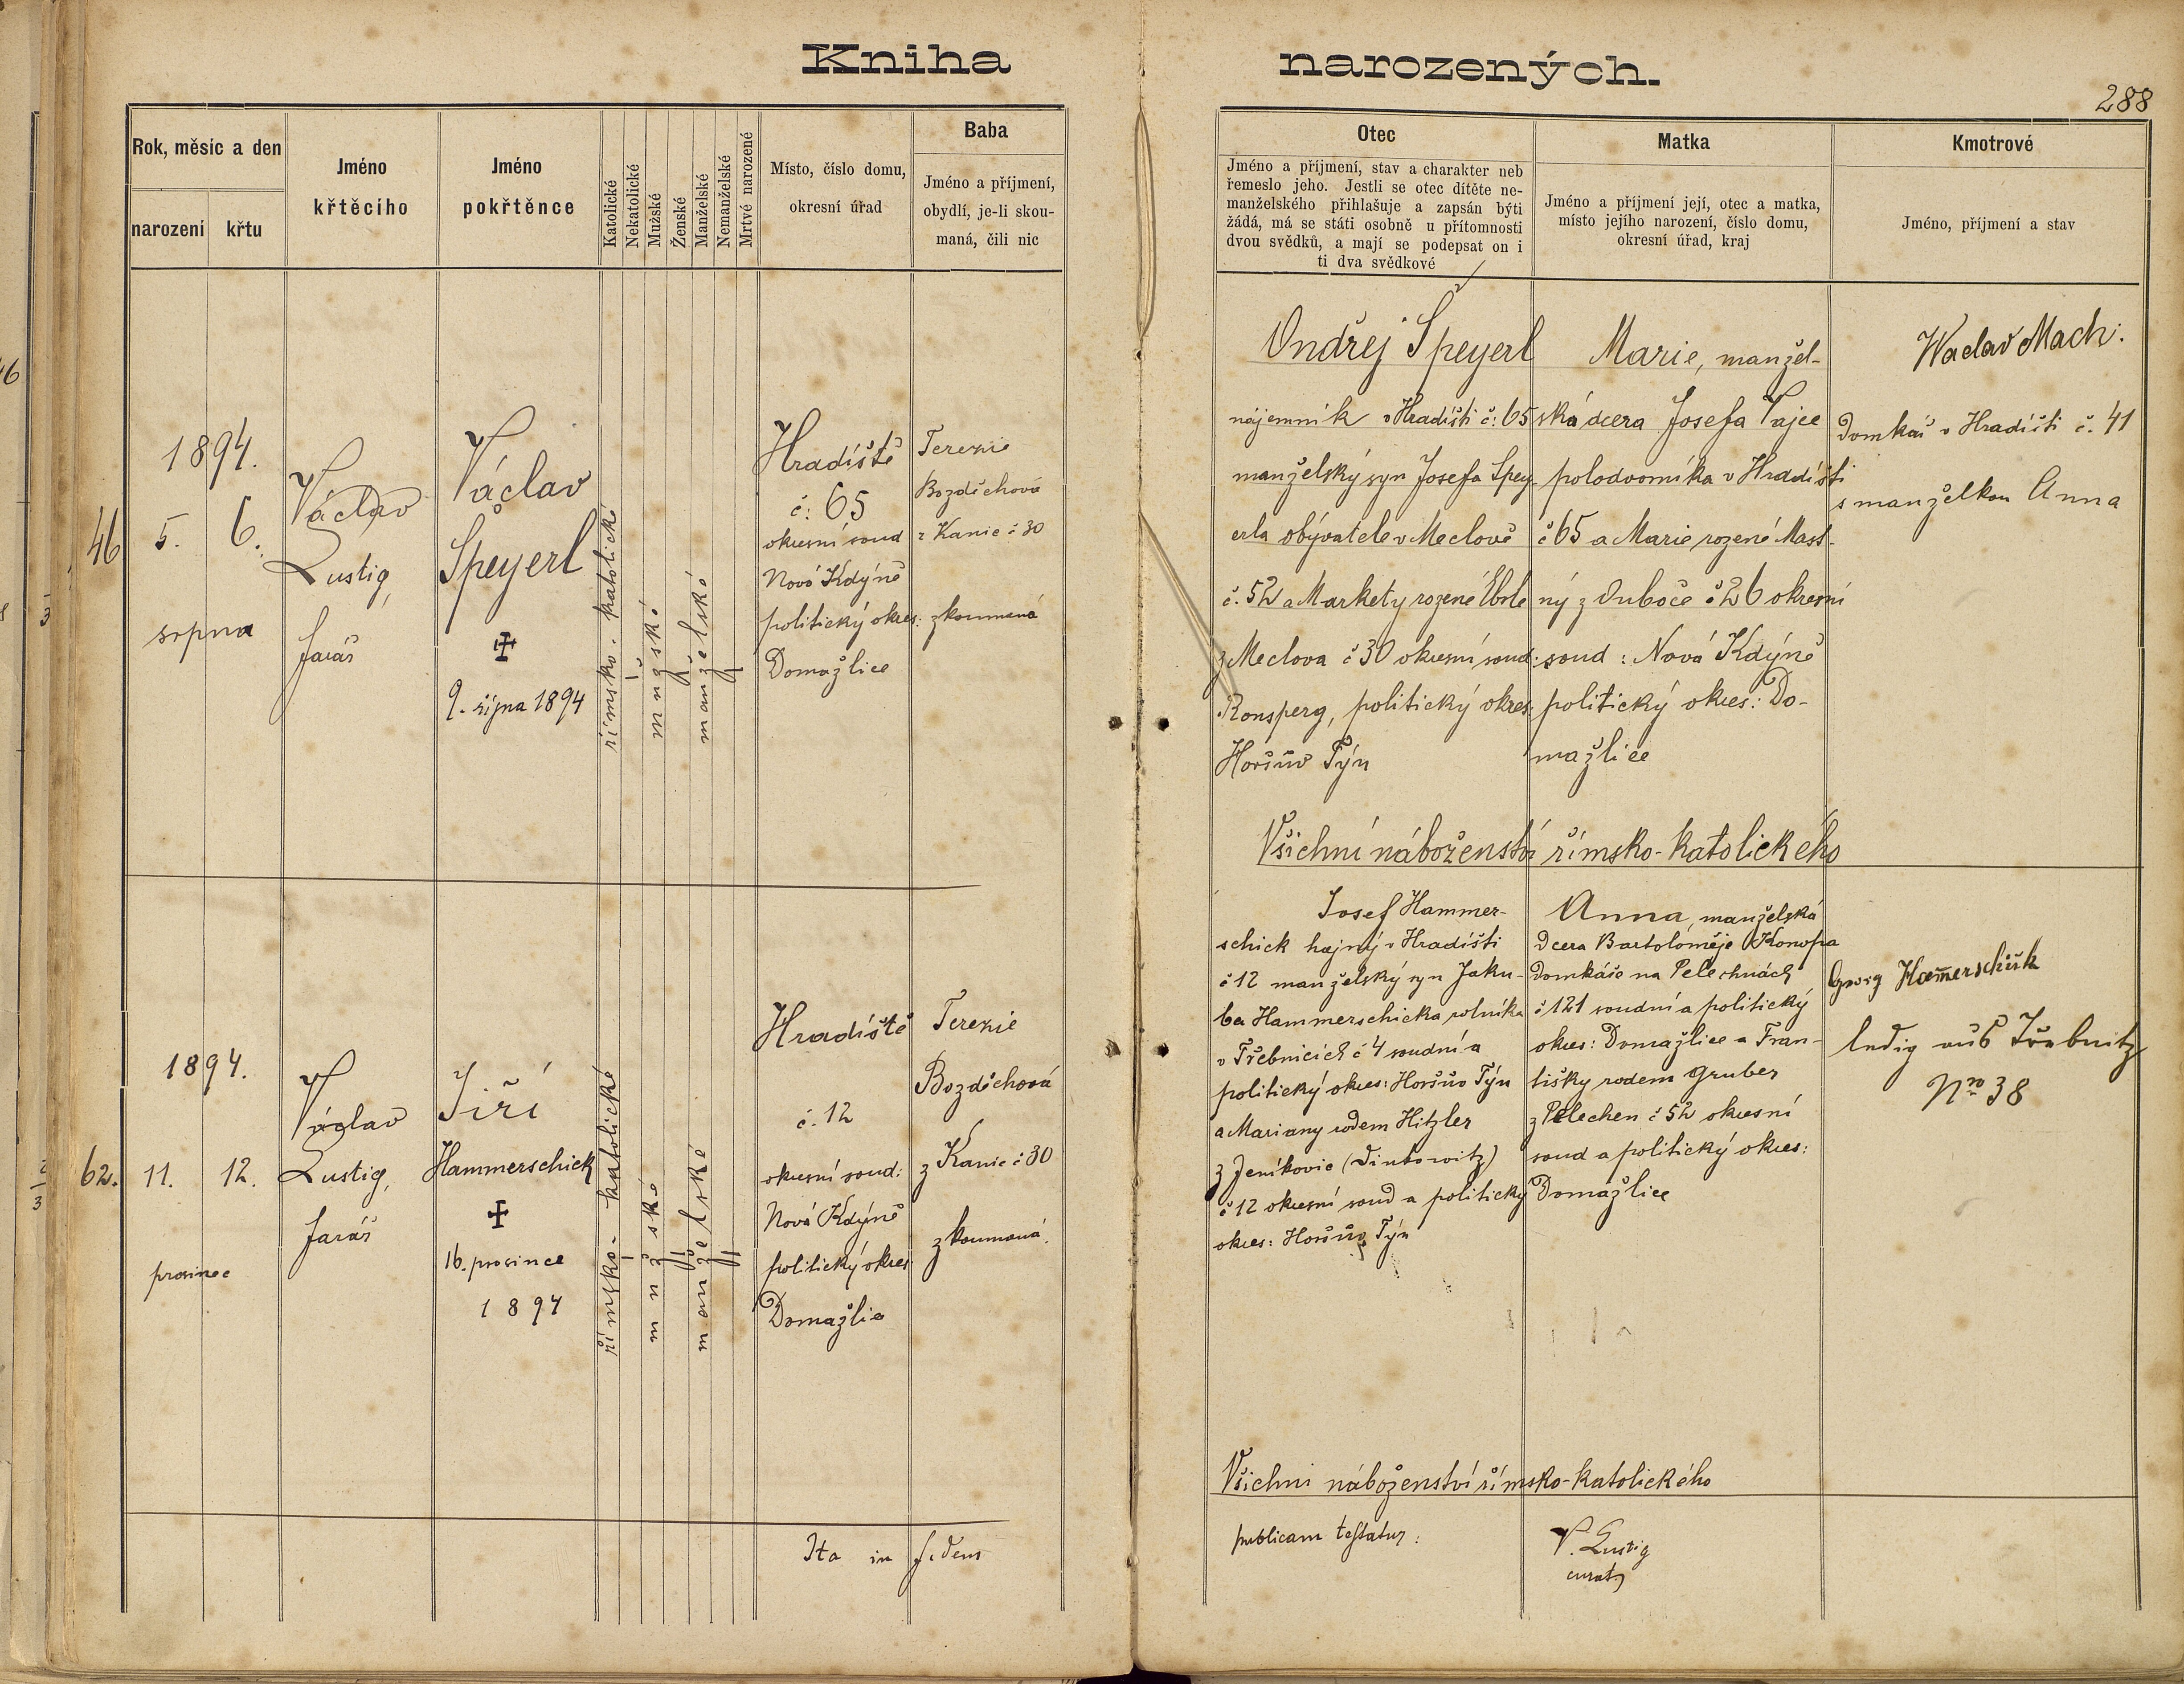 Kniha narozených.
288
Rok, měsíc a den
narození
křtu
Jméno
křtěcího
Jméno
pokřtěnce
Katolické
Nekatolické
Mužské
Ženské
Manželské
Nemanželské
Mrtvé narozené
Místo, číslo domu,
okresní úřad
Baba
Jméno a příjmení,
obydlí, je-li skou-
maná, čili nic
Otec
Jméno a příjmení, stav a charakter neb
řemeslo jeho. Jestli se otec dítěte ne-
manželského přihlašuje a zapsán býti
žádá, má se státi osobně u přítomnosti
dvou svědků, a mají se podepsat on i
ti dva svědkové
Matka
Jméno a příjmení její, otec a matka,
místo jejího narození, číslo domu,
okresní úřad, kraj
Kmotrové
Jméno, příjmení a stav
46
1894.
5. 6.
srpna
Václav
Lustig,
farář
Václav
Speyerl
9. října 1894
římsko. katolické
mužské
manželské
Hradiště
č: 65
okresní soud
Nová Kdýně
politický okres:
Domažlice
Terezie
Bozděchová
z Kanic č 30
zkoumaná
Ondřej Speyerl
nájemník v Hradišti č: 65
manželský syn Josefa Spey-
erla obývatele v Meclově
č. 52 a Markety rozené Eberle
z Meclova č 30 okresní soud:
Ronsperg, politický okres:
Horšův Týn
Marie, manžel-
ská dcera Josefa Vajce
polodvorníka v Hradišti
č 65 a Marie rozené Mast-
ný z Ouboče č 26 okresní
soud: Nová Kdýně
politický okres: Do-
mažlice
Waclav Mach.
Domkář v Hradišti č. 41
s manželkou Anna
Všichni náboženství římsko-katolického
62.
1894.
11. 12.
prosince
Václav
Lustig,
farář
Jiří
Hammerschick
16. prosince
1894
římsko- katolické
mužské
manželské
Hradiště
č. 12
okresní soud:
Nová Kdýně
politický okres
Domažlice
Terezie
Bozděchová
z Kanic č 30
zkoumaná.
Josef Hammer-
schick hajný v Hradišti
č 12 manželský syn Jaku-
ba Hammerschicka rolníka
v Třebnicích č 4 soudní a
politický okres: Horšův Týn
a Mariany rodem Hitzler
z Jeníkovic
č 12 okresní soud a politický
okres: Horšův Týn
Anna, manželská
dcera Bartoloměje Konopa
domkáře na Pelechách
č 121 soudní a politický
okres: Domažlice a Fran-
tišky rodem Gruber
z Pelechen č 52 okresní
soud a politický okres:
Domažlice
Georg Hammerschick
ledig aus Třebnitz
Nro 38
Všichni náboženství římsko-katolického
Ita in fidem publicam testatur:
V. Lustig
curat